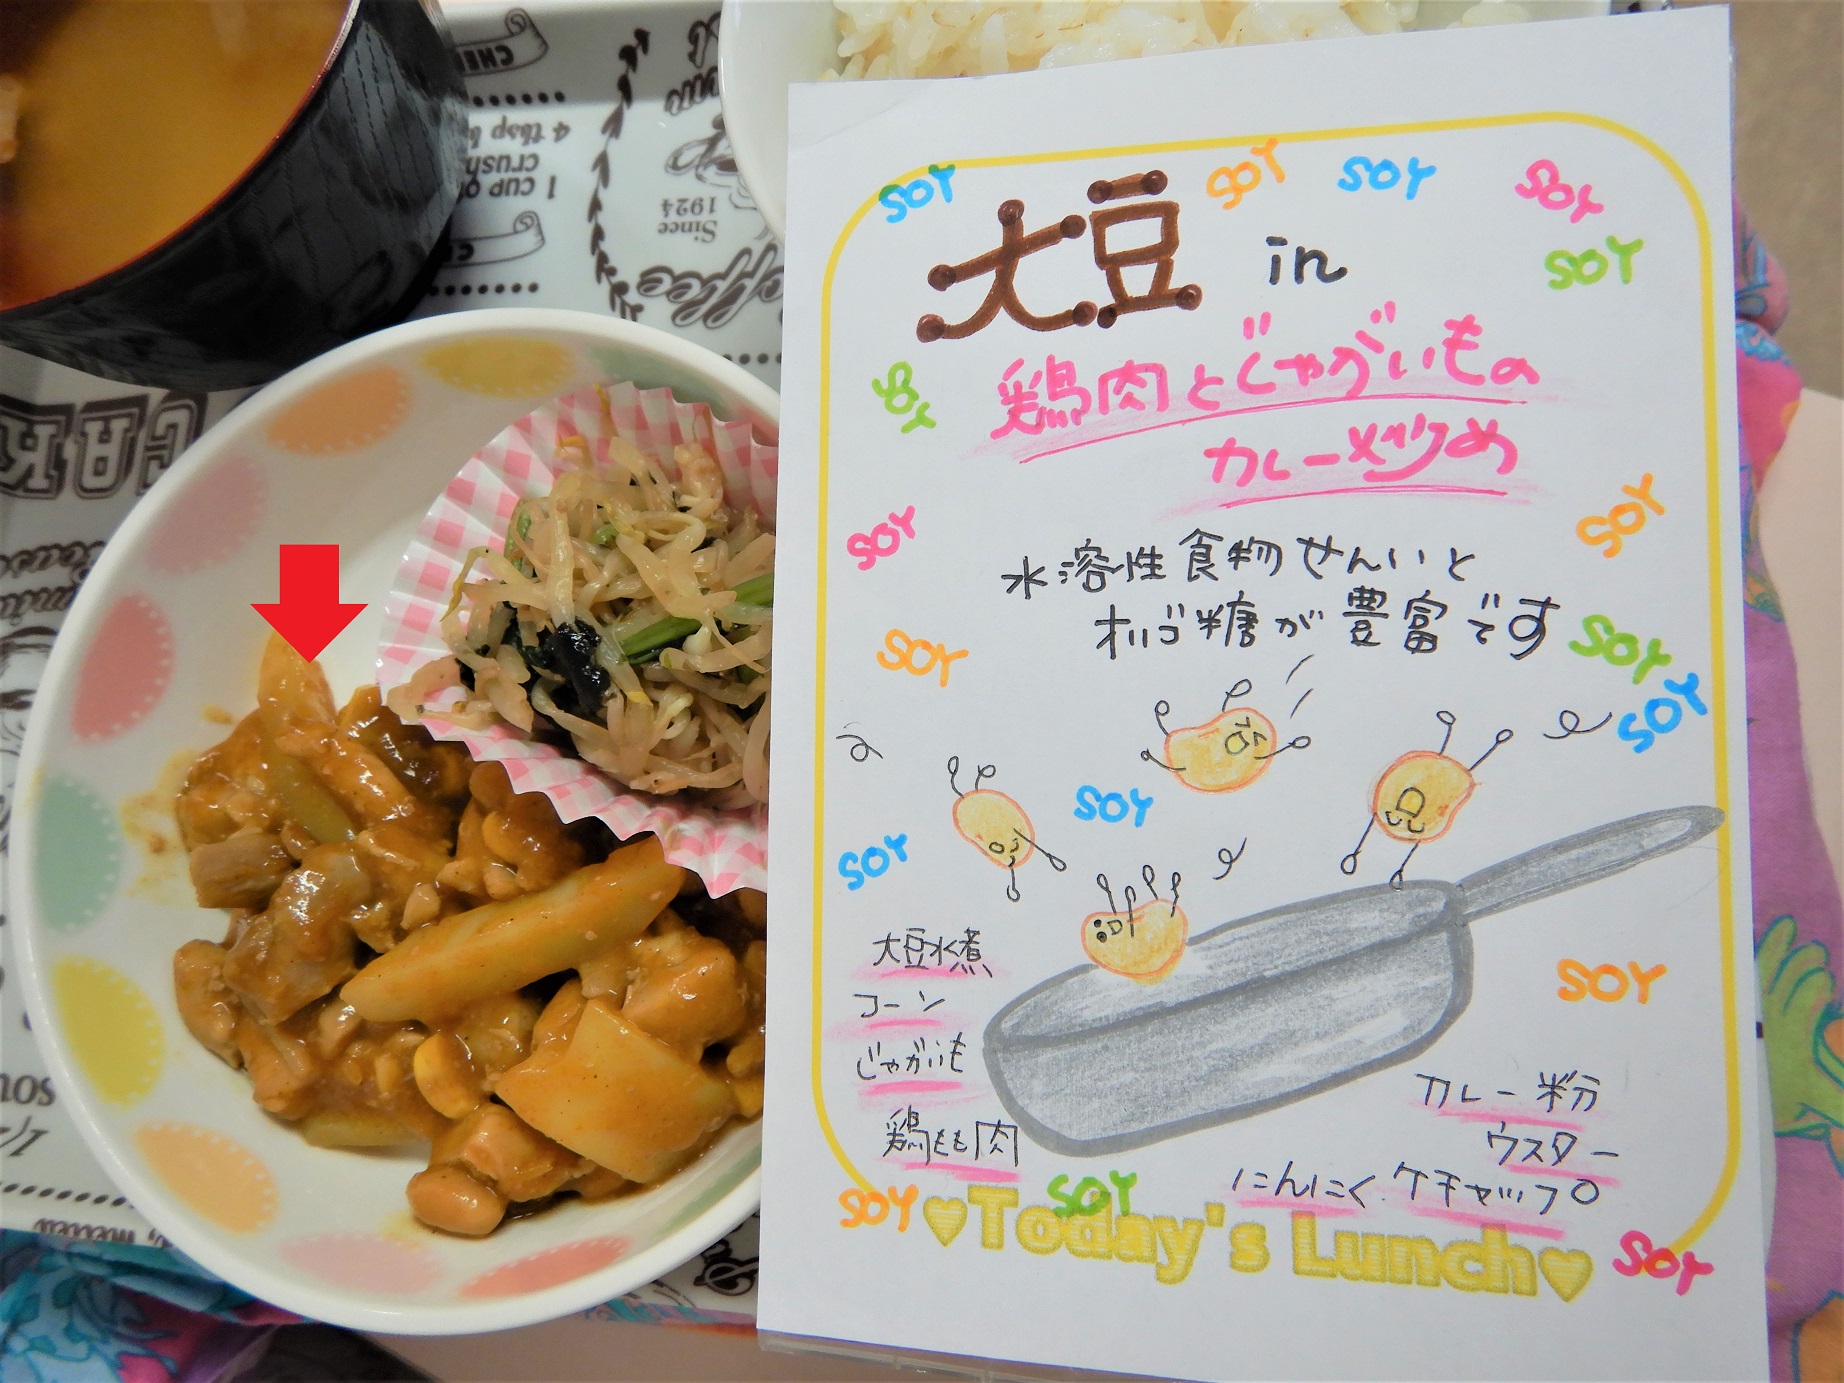 SOY
SOY
SOY
SOY
大豆 in
SOY
鶏肉とじゃがいもの
SOY
カレー炒め
SOY
SOY
水溶性食物せんいと
オリゴ糖が豊富です
SOY
SOY
SOY
SOY
SOY
大豆水煮
コーン
SOY
じゃがいも
カレー粉
鶏もも肉
ウスター
にんにく ケチャップ
SOY
SOY
♥Today's Lunch♥
SOY
4 tbsp
crush
1 CUP
Since
1924